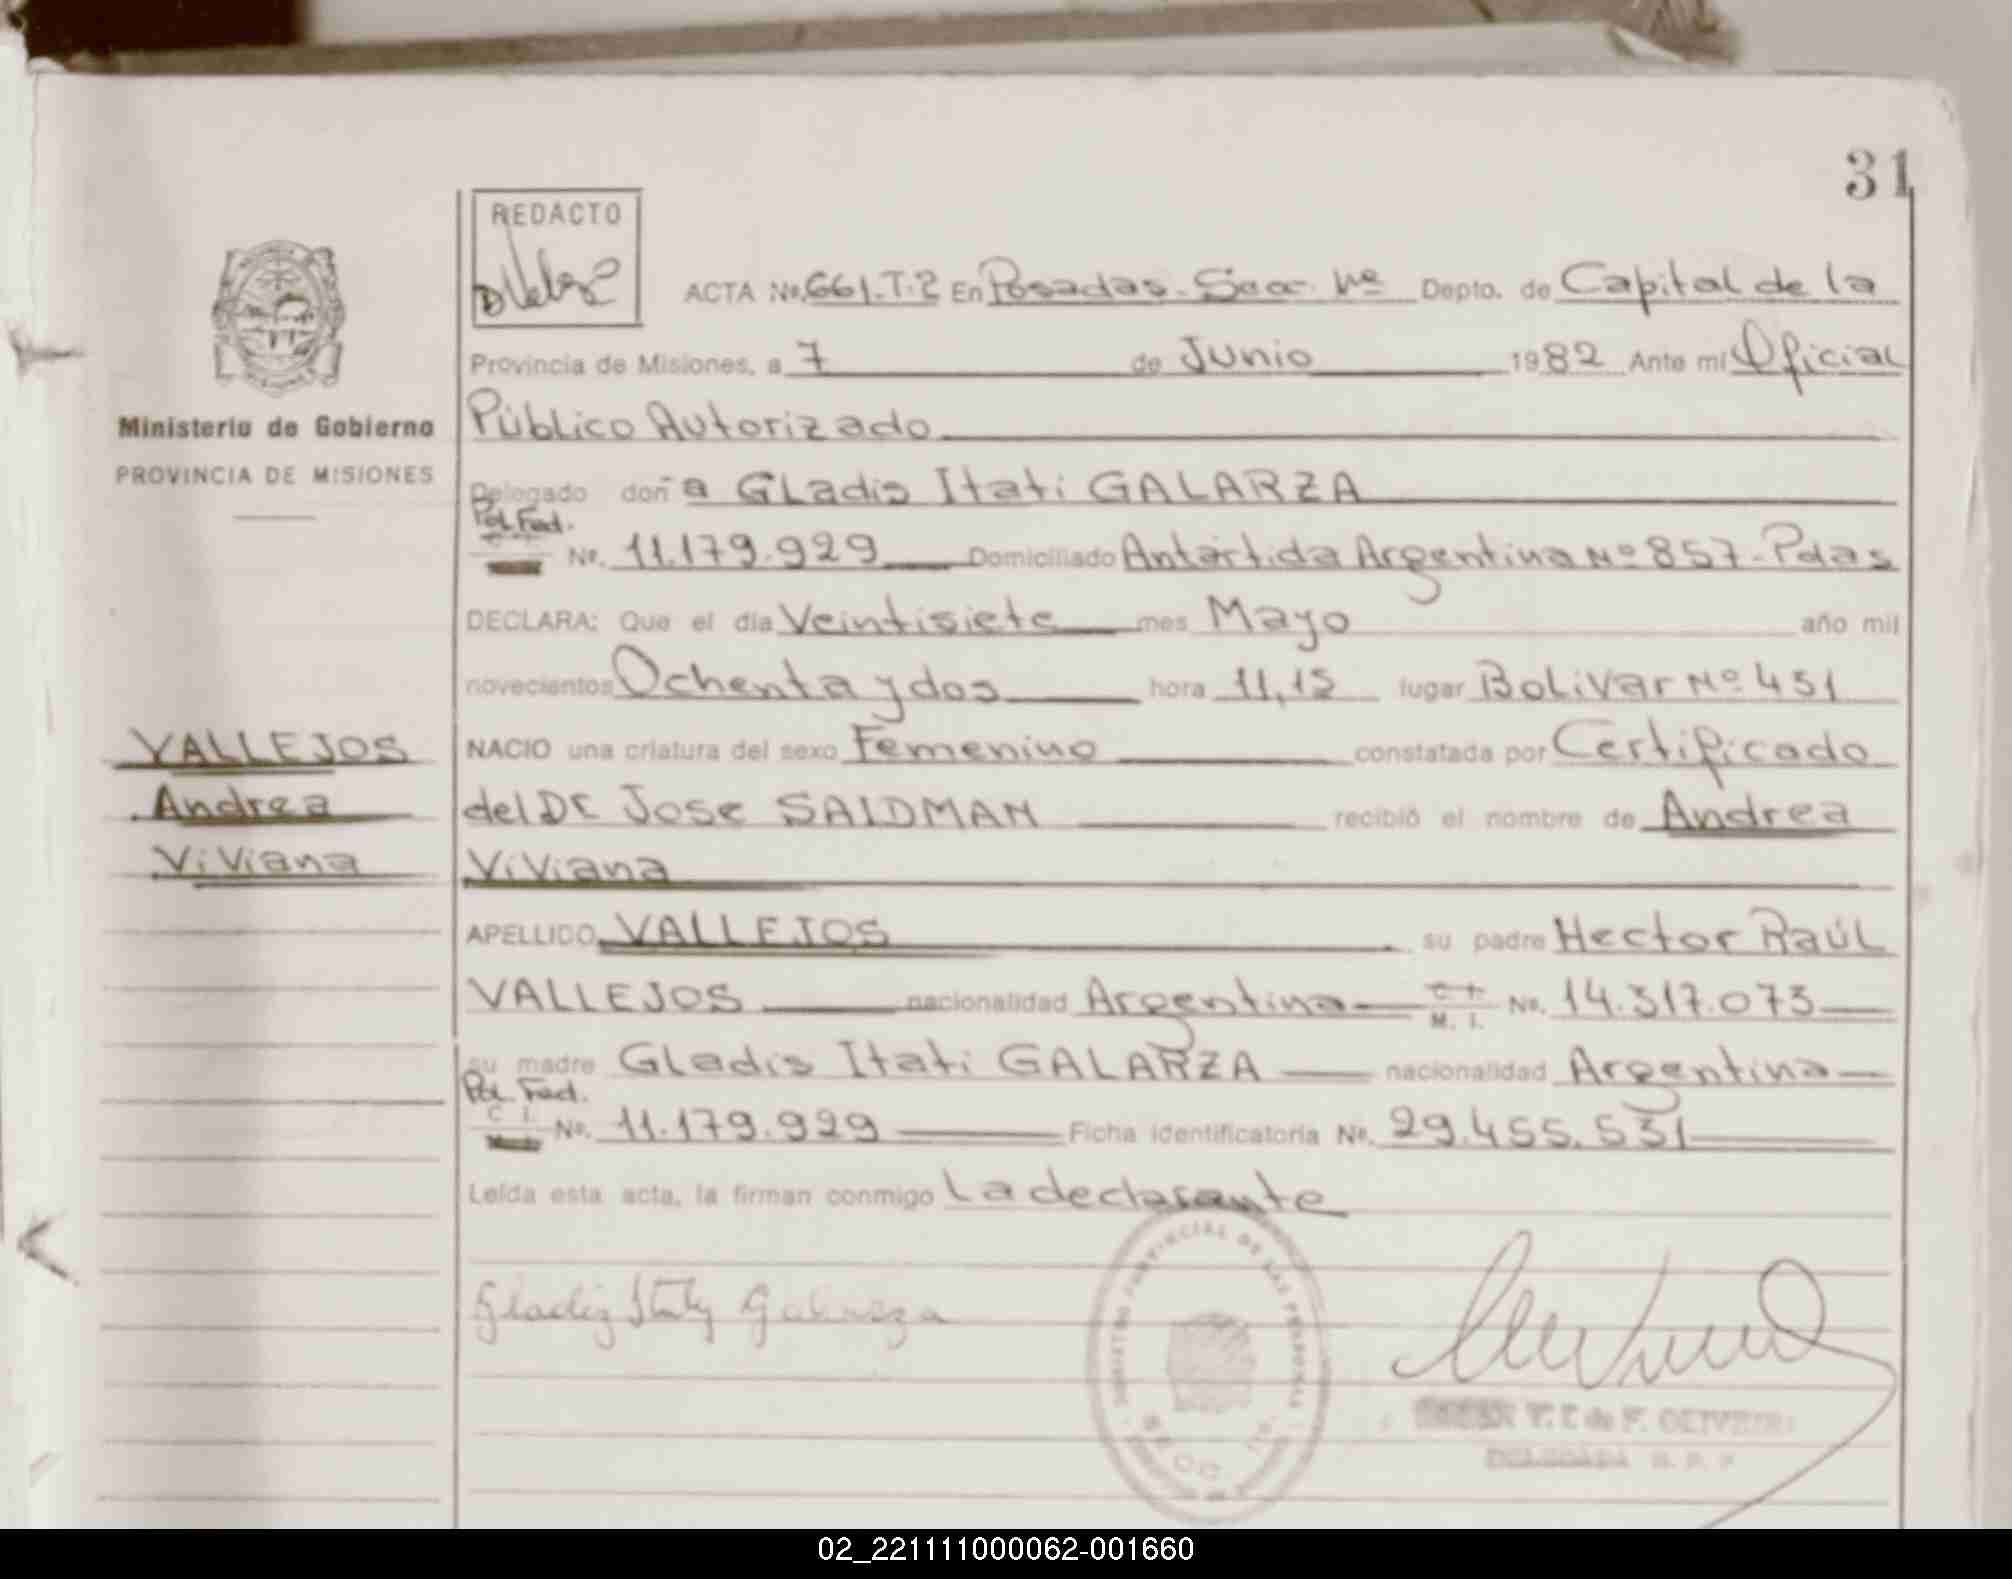 31
REDACTO
ACTA No. 661.T.2 En Posadas - Secc. 1ra Depto. de Capital de la
Provincia de Misiones, a 7 de Junio 1982 Ante mí Oficial
Ministerio de Gobierno
Público Autorizado
PROVINCIA DE MISIONES
Delegado doña Gladis Itati GALARZA
Pol. Fed.
No. 11.179.929 Domiciliado Antártida Argentina Nº 857 - Pdas
DECLARA: Que el día Veintisiete mes Mayo año mil
novecientos Ochenta y dos hora 11,15 lugar Bolivar Nº 451
VALLEJOS
NACIO una criatura del sexo Femenino constatada por Certificado
Andrea
del Dr Jose SAIDMAN recibió el nombre de Andrea
Viviana
Viviana
APELLIDO VALLEJOS su padre Hector Raúl
VALLEJOS nacionalidad Argentina C. I. M. I. No. 14.317.073
su madre Gladis Itati GALARZA nacionalidad Argentina
Pol. Fed.
C. I. No. 11.179.929 Ficha identificatoria No. 29.455.531
Leída esta acta, la firman conmigo La declarante
Gladiz Itaty Galarza
REGISTRO PROVINCIAL DE LAS PERSONAS
SECC. 1ra.
02_221111000062-001660